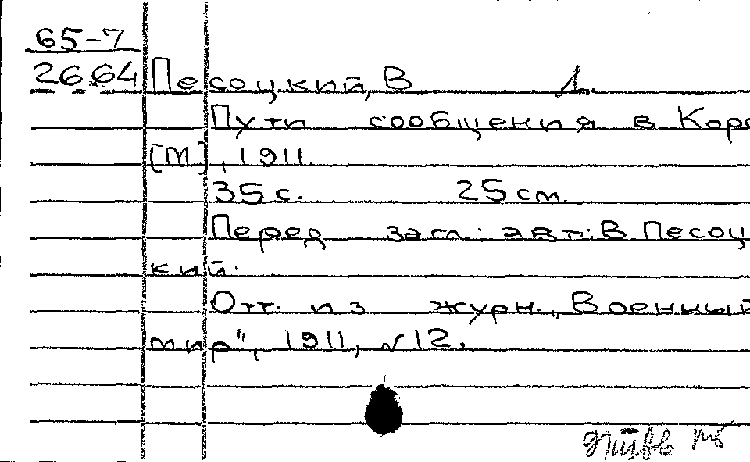 65-7
2664 Песоцкий, В 1.
Пути сообщения в Коре
[М], 1911.
35 с. 25 см.
Перед загл.: авт.: В. Песоц
кий.
Отт. из журн. „Военный
мир", 1911, №12.